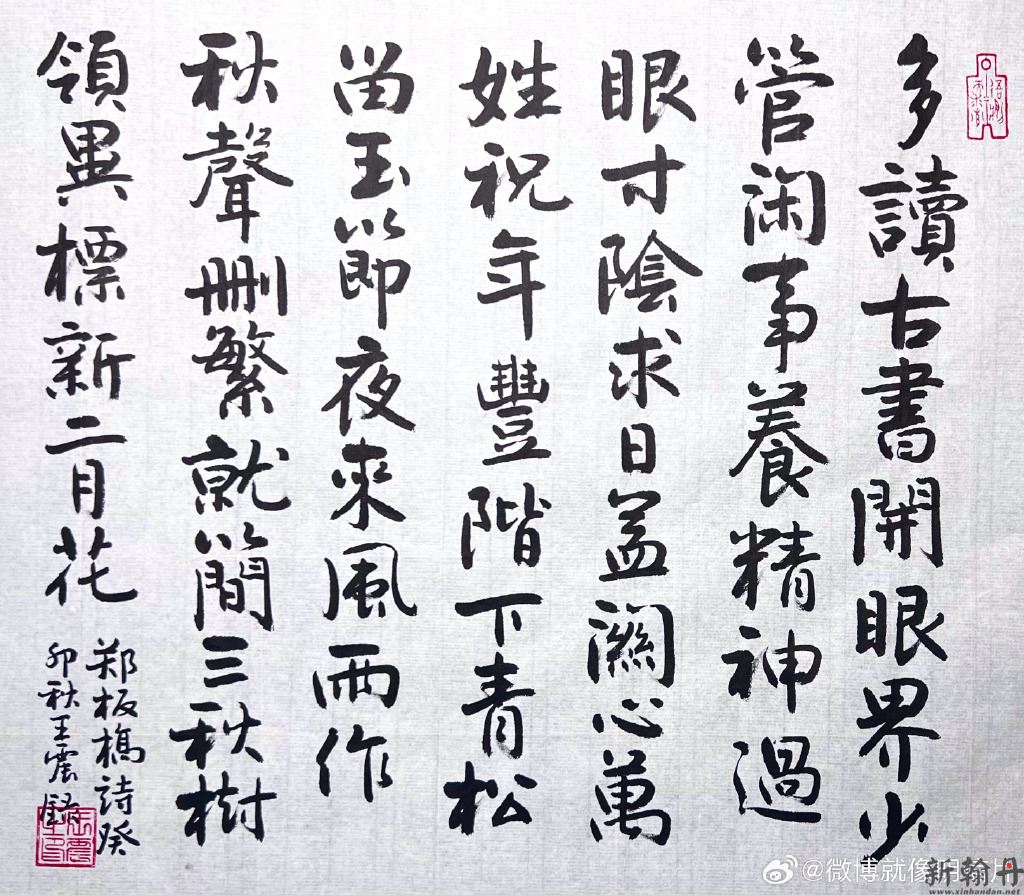 多讀古書開眼界少
管闲事養精神過
眼寸陰求日益關心萬
姓祝年豐階下青松
留玉節夜來風雨作
秋聲删繁就簡三秋樹
領異標新二月花
郑板橋詩癸
卯秋王震録
@微博就像明
新翰丹
www.xinhandan.net